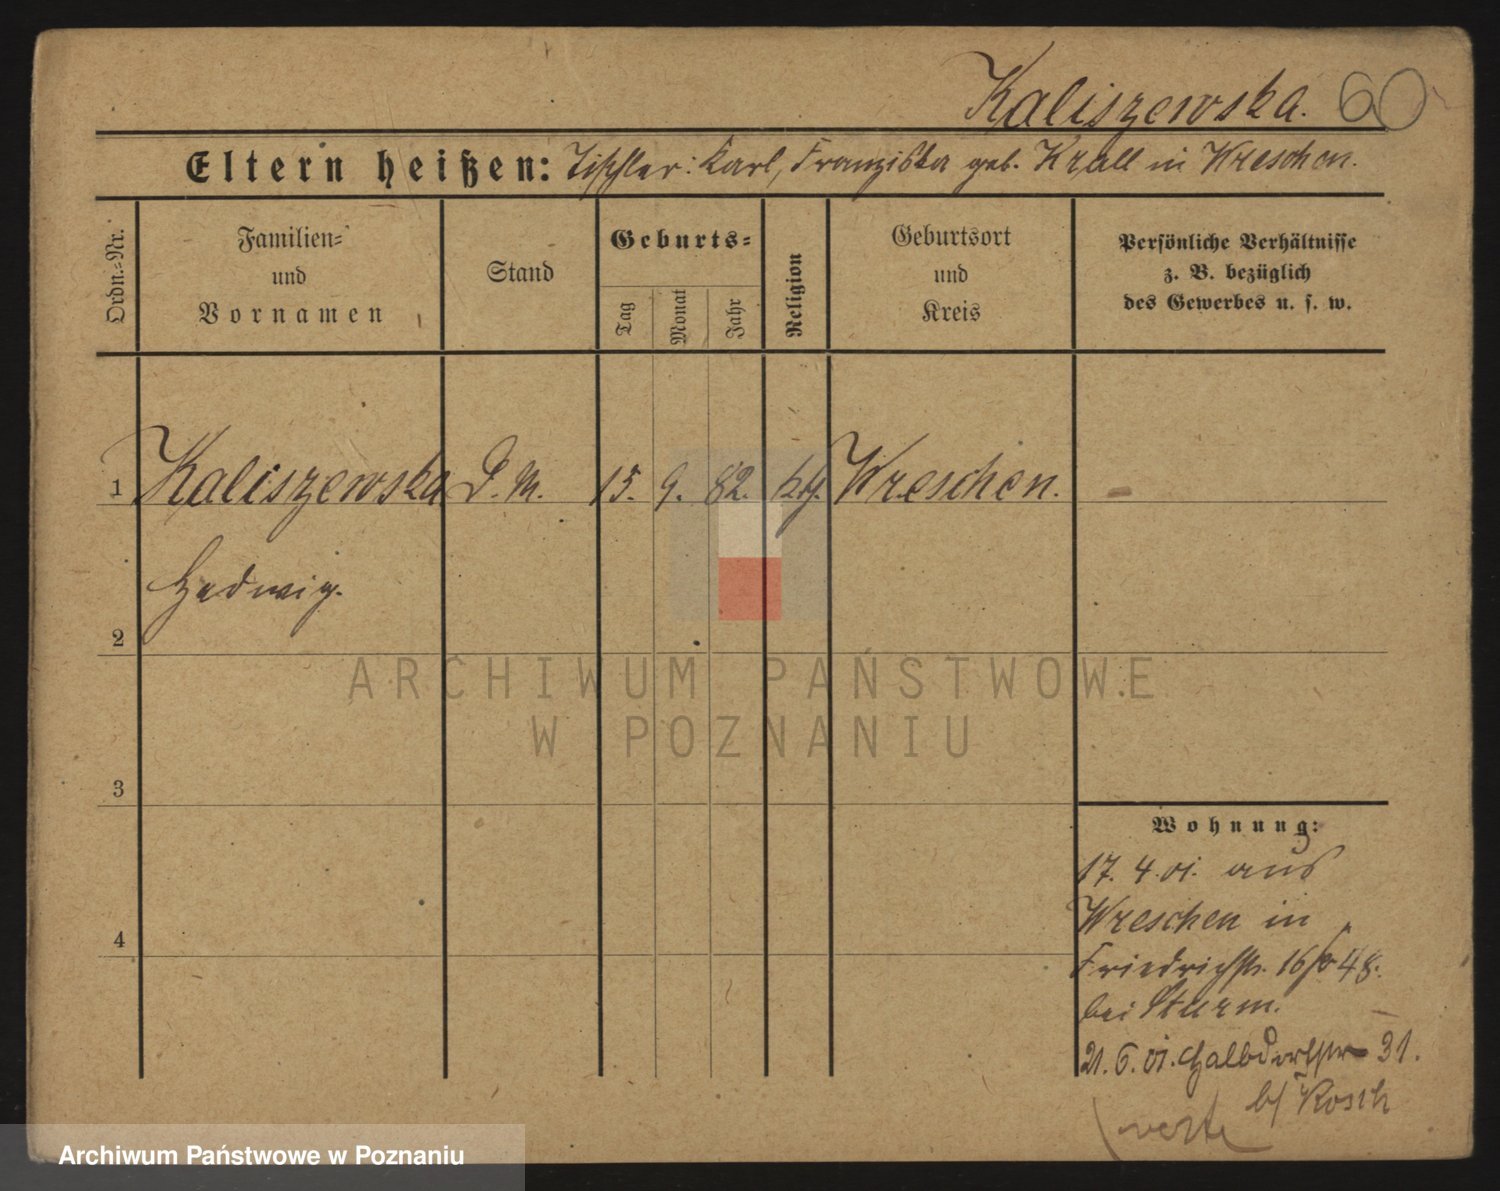 Kaliszewska. 60
Eltern heißen: Tischler: Karl, Franziska geb. Krall in Wreschen.
Ordn.-Nr.
Familien-
und
Vornamen
Stand
Geburts-
Tag
Monat
Jahr
Religion
Geburtsort
und
Kreis
Persönliche Verhältnisse
z. B. bezüglich
des Gewerbes u. s. w.
1 Kaliszewska D. M. 15. 9. 82. kth. Wreschen. –
Hedwig.
2
ARCHIWUM PAŃSTWOWE
W POZNANIU
3
Wohnung:
17. 4. 01. aus
Wreschen in
4
Friedrichstr. 16 48.
bei Sturm.
21. 6. 01. Halbdorfstr 31.
b/ Kosch
verte
Archiwum Państwowe w Poznaniu